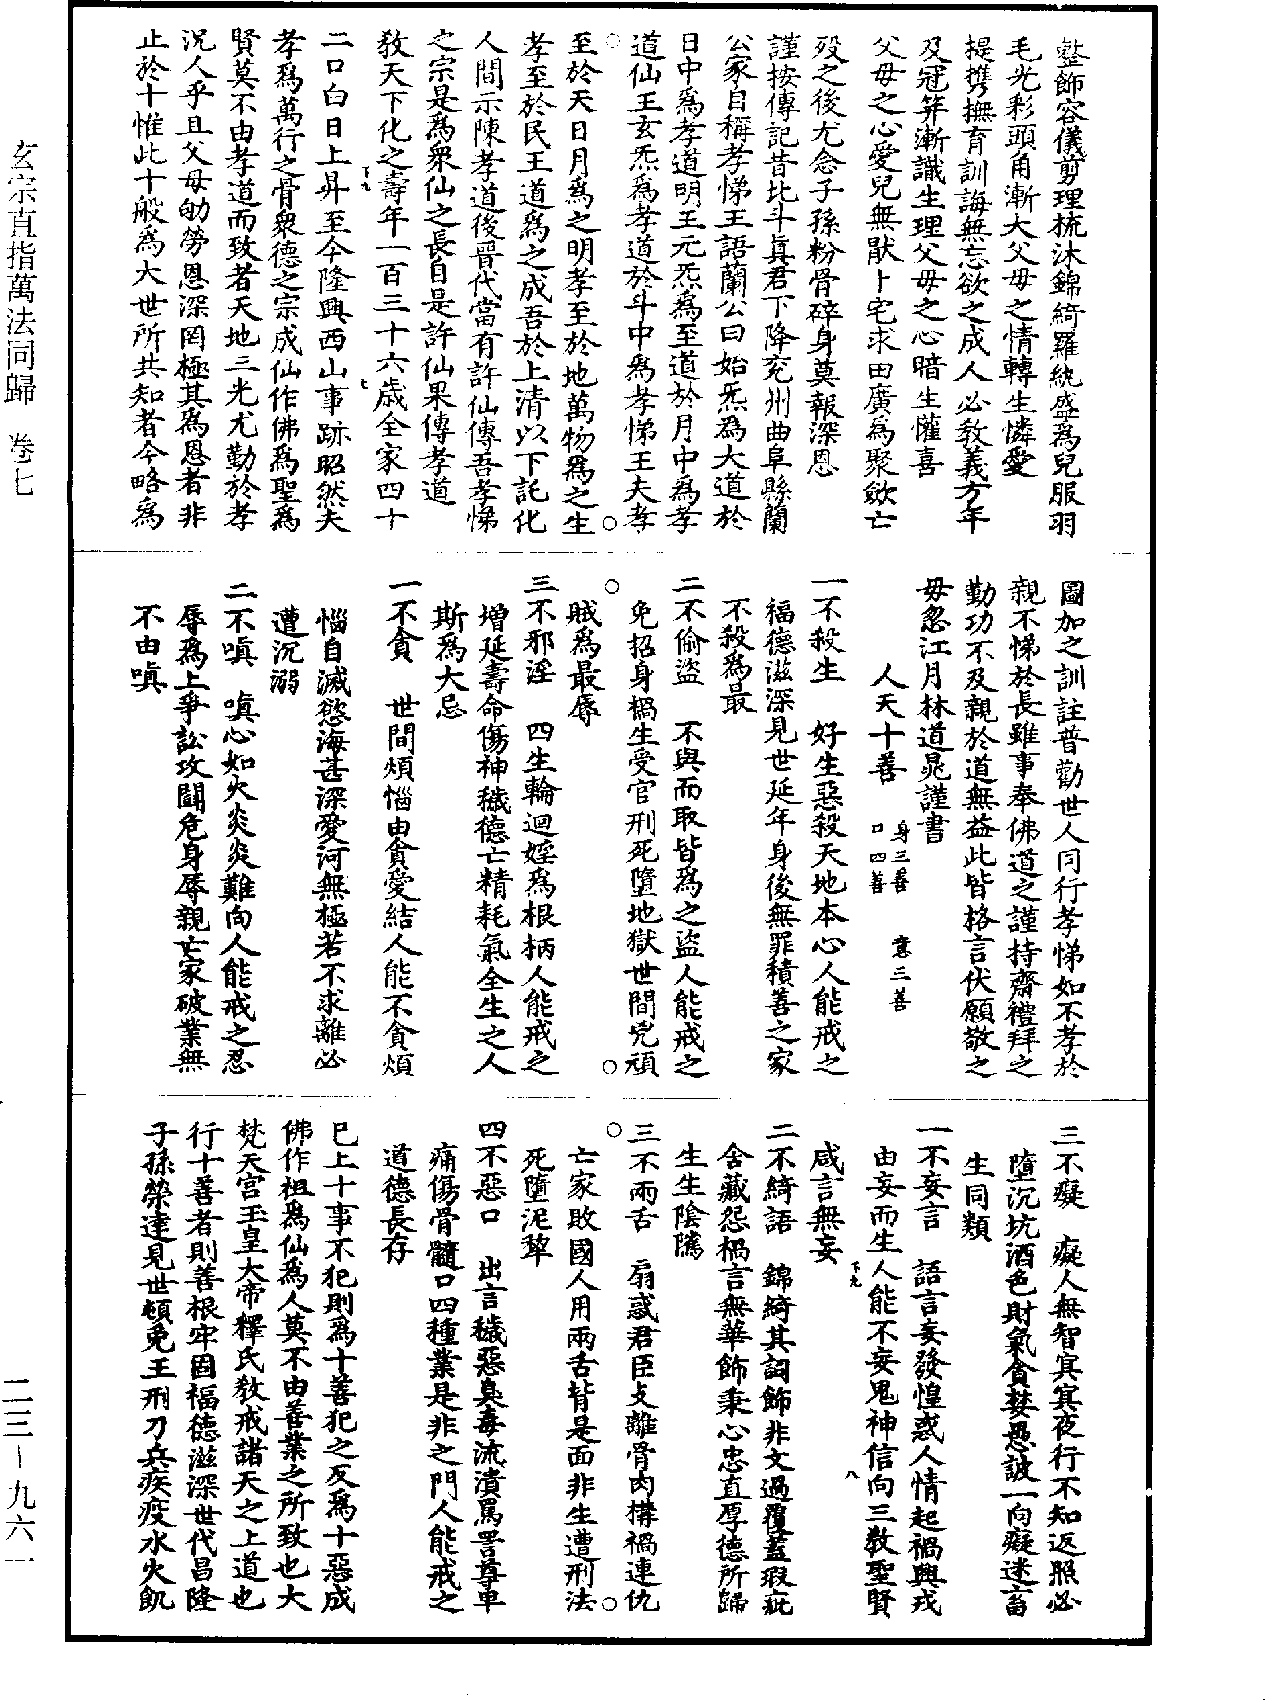 整飾容儀剪理梳沐錦綺羅紈盛爲兒服羽
毛光彩頭角漸大父母之情轉生憐愛
提携撫育訓誨無忘欲之成人必教義方年
及冠笄漸識生理父母之心暗生懽喜
父母之心愛兒無猒卜宅求田廣爲聚歛亡
歿之後尤念子孫粉骨碎身莫報深恩
謹按傳記昔北斗眞君下降兖州曲阜縣蘭
公家自稱孝悌王語蘭公曰始炁爲大道於
日中爲孝道明王元炁爲至道於月中爲孝
道仙王玄炁爲孝道於斗中爲孝悌王夫孝
至於天日月爲之明孝至於地萬物爲之生
孝至於民王道爲之成吾於上清以下託化
人間示陳孝道後晉代當有許仙傳吾孝悌
之宗是爲衆仙之長自是許仙果傳孝道
教天下化之壽年一百三十六歳全家四十
二口白日上昇至今隆興西山事跡昭然夫
孝爲萬行之骨衆德之宗成仙作佛爲聖爲
賢莫不由孝道而致者天地三光尤勤於孝
况人乎且父母劬勞恩深罔極其爲恩者非
止於十惟此十般爲大世所共知者今略爲
圖加之訓註普勸世人同行孝悌如不孝於
親不悌於長雖事奉佛道之謹持齋禮拜之
勤功不及親於道無益此皆格言伏願敬之
毋忽江月林道晁謹書
人天十善 身三善 口四善 意三善
一不殺生 好生惡殺天地本心人能戒之
福德滋深見世延年身後無罪積善之家
不殺爲最
二不偷盜 不與而取皆爲之盜人能戒之
免招身禍生受官刑死墮地獄世間兇頑
賊爲最辱
三不邪淫 四生輪迴婬爲根柄人能戒之
增延壽命傷神穢德亡精耗氣全生之人
斯爲大忌
一不貪 世間煩惱由貪愛結人能不貪煩
惱自滅慾海甚深愛河無極若不求離必
遭沉溺
二不嗔 嗔心如火炎炎難向人能戒之忍
辱爲上爭訟攻鬬危身辱親亡家破業無
不由嗔
三不癡 癡人無智冥冥夜行不知返照必
墮沉坑酒色財氣貪婪愚詖一向癡迷畜
生同類
一不妄言 語言妄發惶惑人情起禍興戎
由妄而生人能不妄鬼神信向三教聖賢
咸言無妄
二不綺語 錦綺其詞飾非文過覆蓋瑕疵
含藏怨禍言無華飾秉心忠直厚德所歸
生生陰隲
三不兩舌 扇惑君臣支離骨肉構禍連仇
亡家敗國人用兩舌背是面非生遭刑法
死墮泥犂
四不惡口 出言穢惡臭毒流潰罵詈尊卑
痛傷骨髓口四種業是非之門人能戒之
道德長存
已上十事不犯則爲十善犯之反爲十惡成
佛作祖爲仙爲人莫不由善業之所致也大
梵天宮玉皇大帝釋氏教戒諸天之上道也
行十善者則善根牢固福德滋深世代昌隆
子孫榮達見世頓免王刑刀兵疾疫水火飢
玄宗直指萬法同歸 卷七
二三—九六一